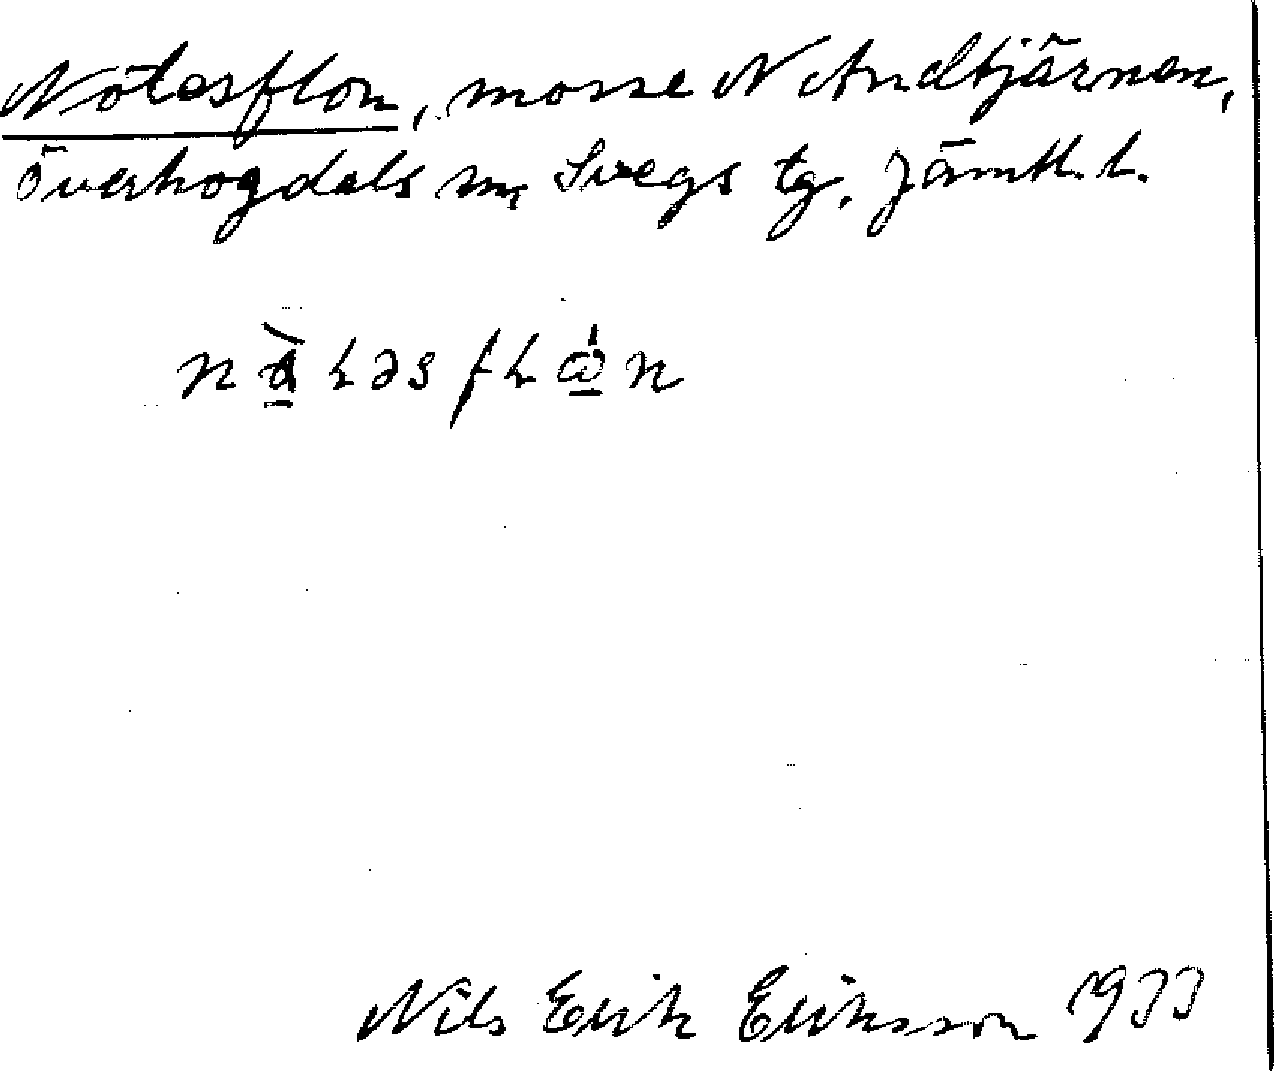 Nölesflon, mosse N Andtjärnen,
Överhogdals sn, Svegs tg. Jämtl. l.
Nils Erik Eriksson 1933